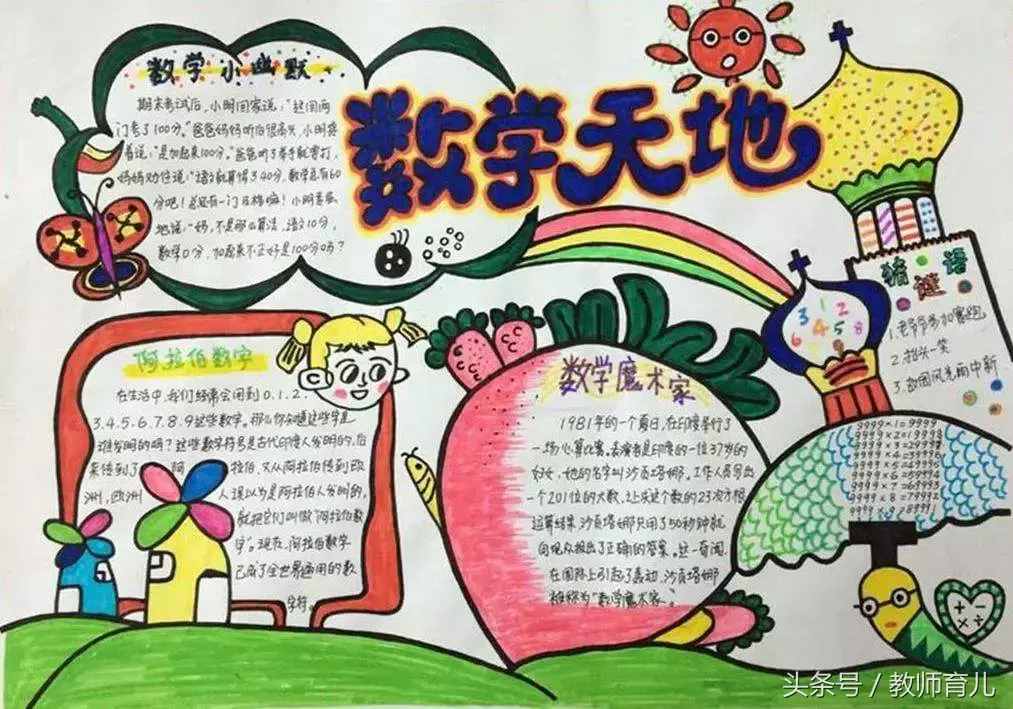 数学天地
数学小幽默
期末考试后,小明回家说:“这回两
门考了100分。”爸爸妈妈听后很高兴,小明接
着说:“是加起来100分。”爸爸听了举手就要打,
妈妈劝住说:“语文就算得了40分,数学总有60
分吧!总还有一门及格嘛!小明委屈
地说:“妈,不是那么算法,语文10分,
数学0分,加起来不正好是100分吗?
阿拉伯数字
在生活中,我们经常会用到0.1.2.
3.4.5.6.7.8.9这些数字。那么你知道这些字是
谁发明的吗?这些数字符号是古代印度人发明的,后
来传到了阿拉伯,又从阿拉伯传到欧
洲,欧洲人误以为是阿拉伯人发明的,
就把它们叫做“阿拉伯数
字”。现在,阿拉伯数字
已成了全世界通用的数
字符。
数学魔术家
1981年的一个夏日,在印度举行了
一场心算比赛,表演者是印度的一位37岁的
妇女,她的名字叫沙贡塔娜。工作人员写出
一个201位的大数,让求这个数的23次方根
运算结果沙贡塔娜只用了50秒钟就
向观众报出了正确的答案。这一奇闻
在国际上引起了轰动,沙贡塔娜
被称为“数学魔术家”。
3 1 2
6 4 5 8
猜谜语
1.爷爷参加赛跑
2.抬头一笑
3.故国风光雨中新
9999×1=9999
9999×2=19998
9999×3=29997
9999×4=39996
9999×5=49995
9999×6=59994
9999×7=69993
9999×8=79992
9999×9=89991
+ - × ÷
头条号 / 教师育儿